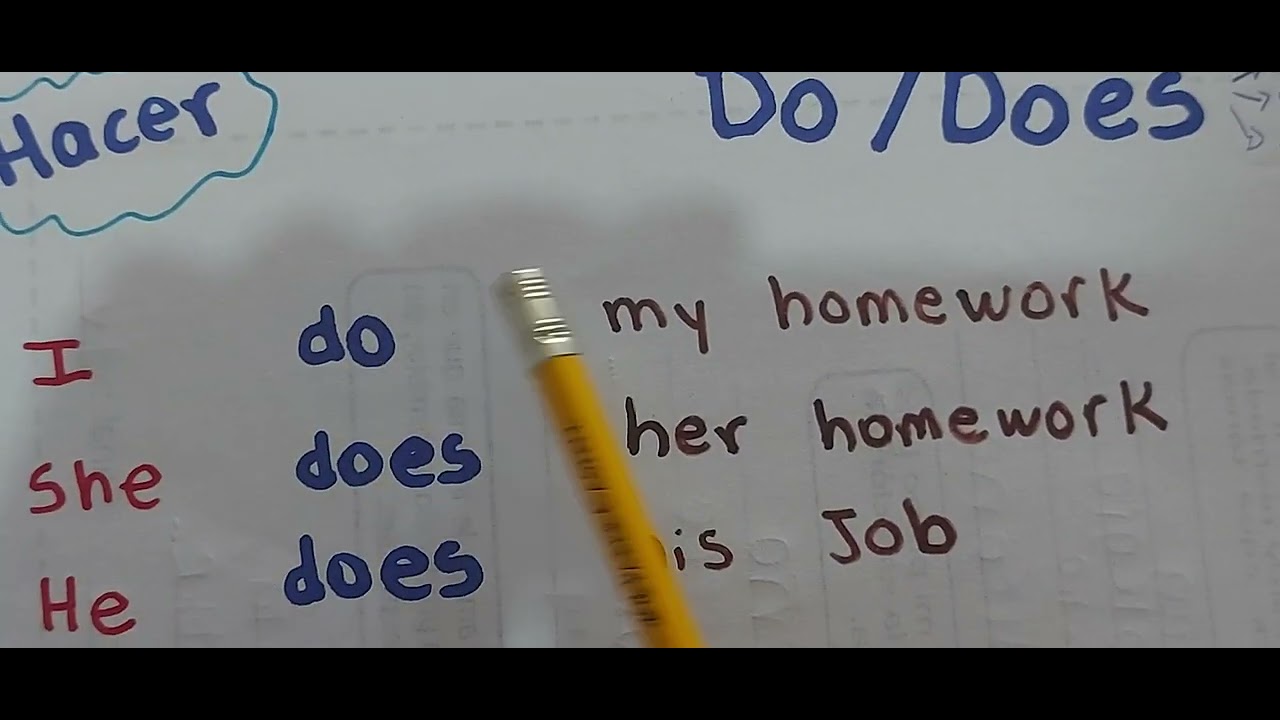 Hacer
Do / Does
I do my homework
she does her homework
He does Job